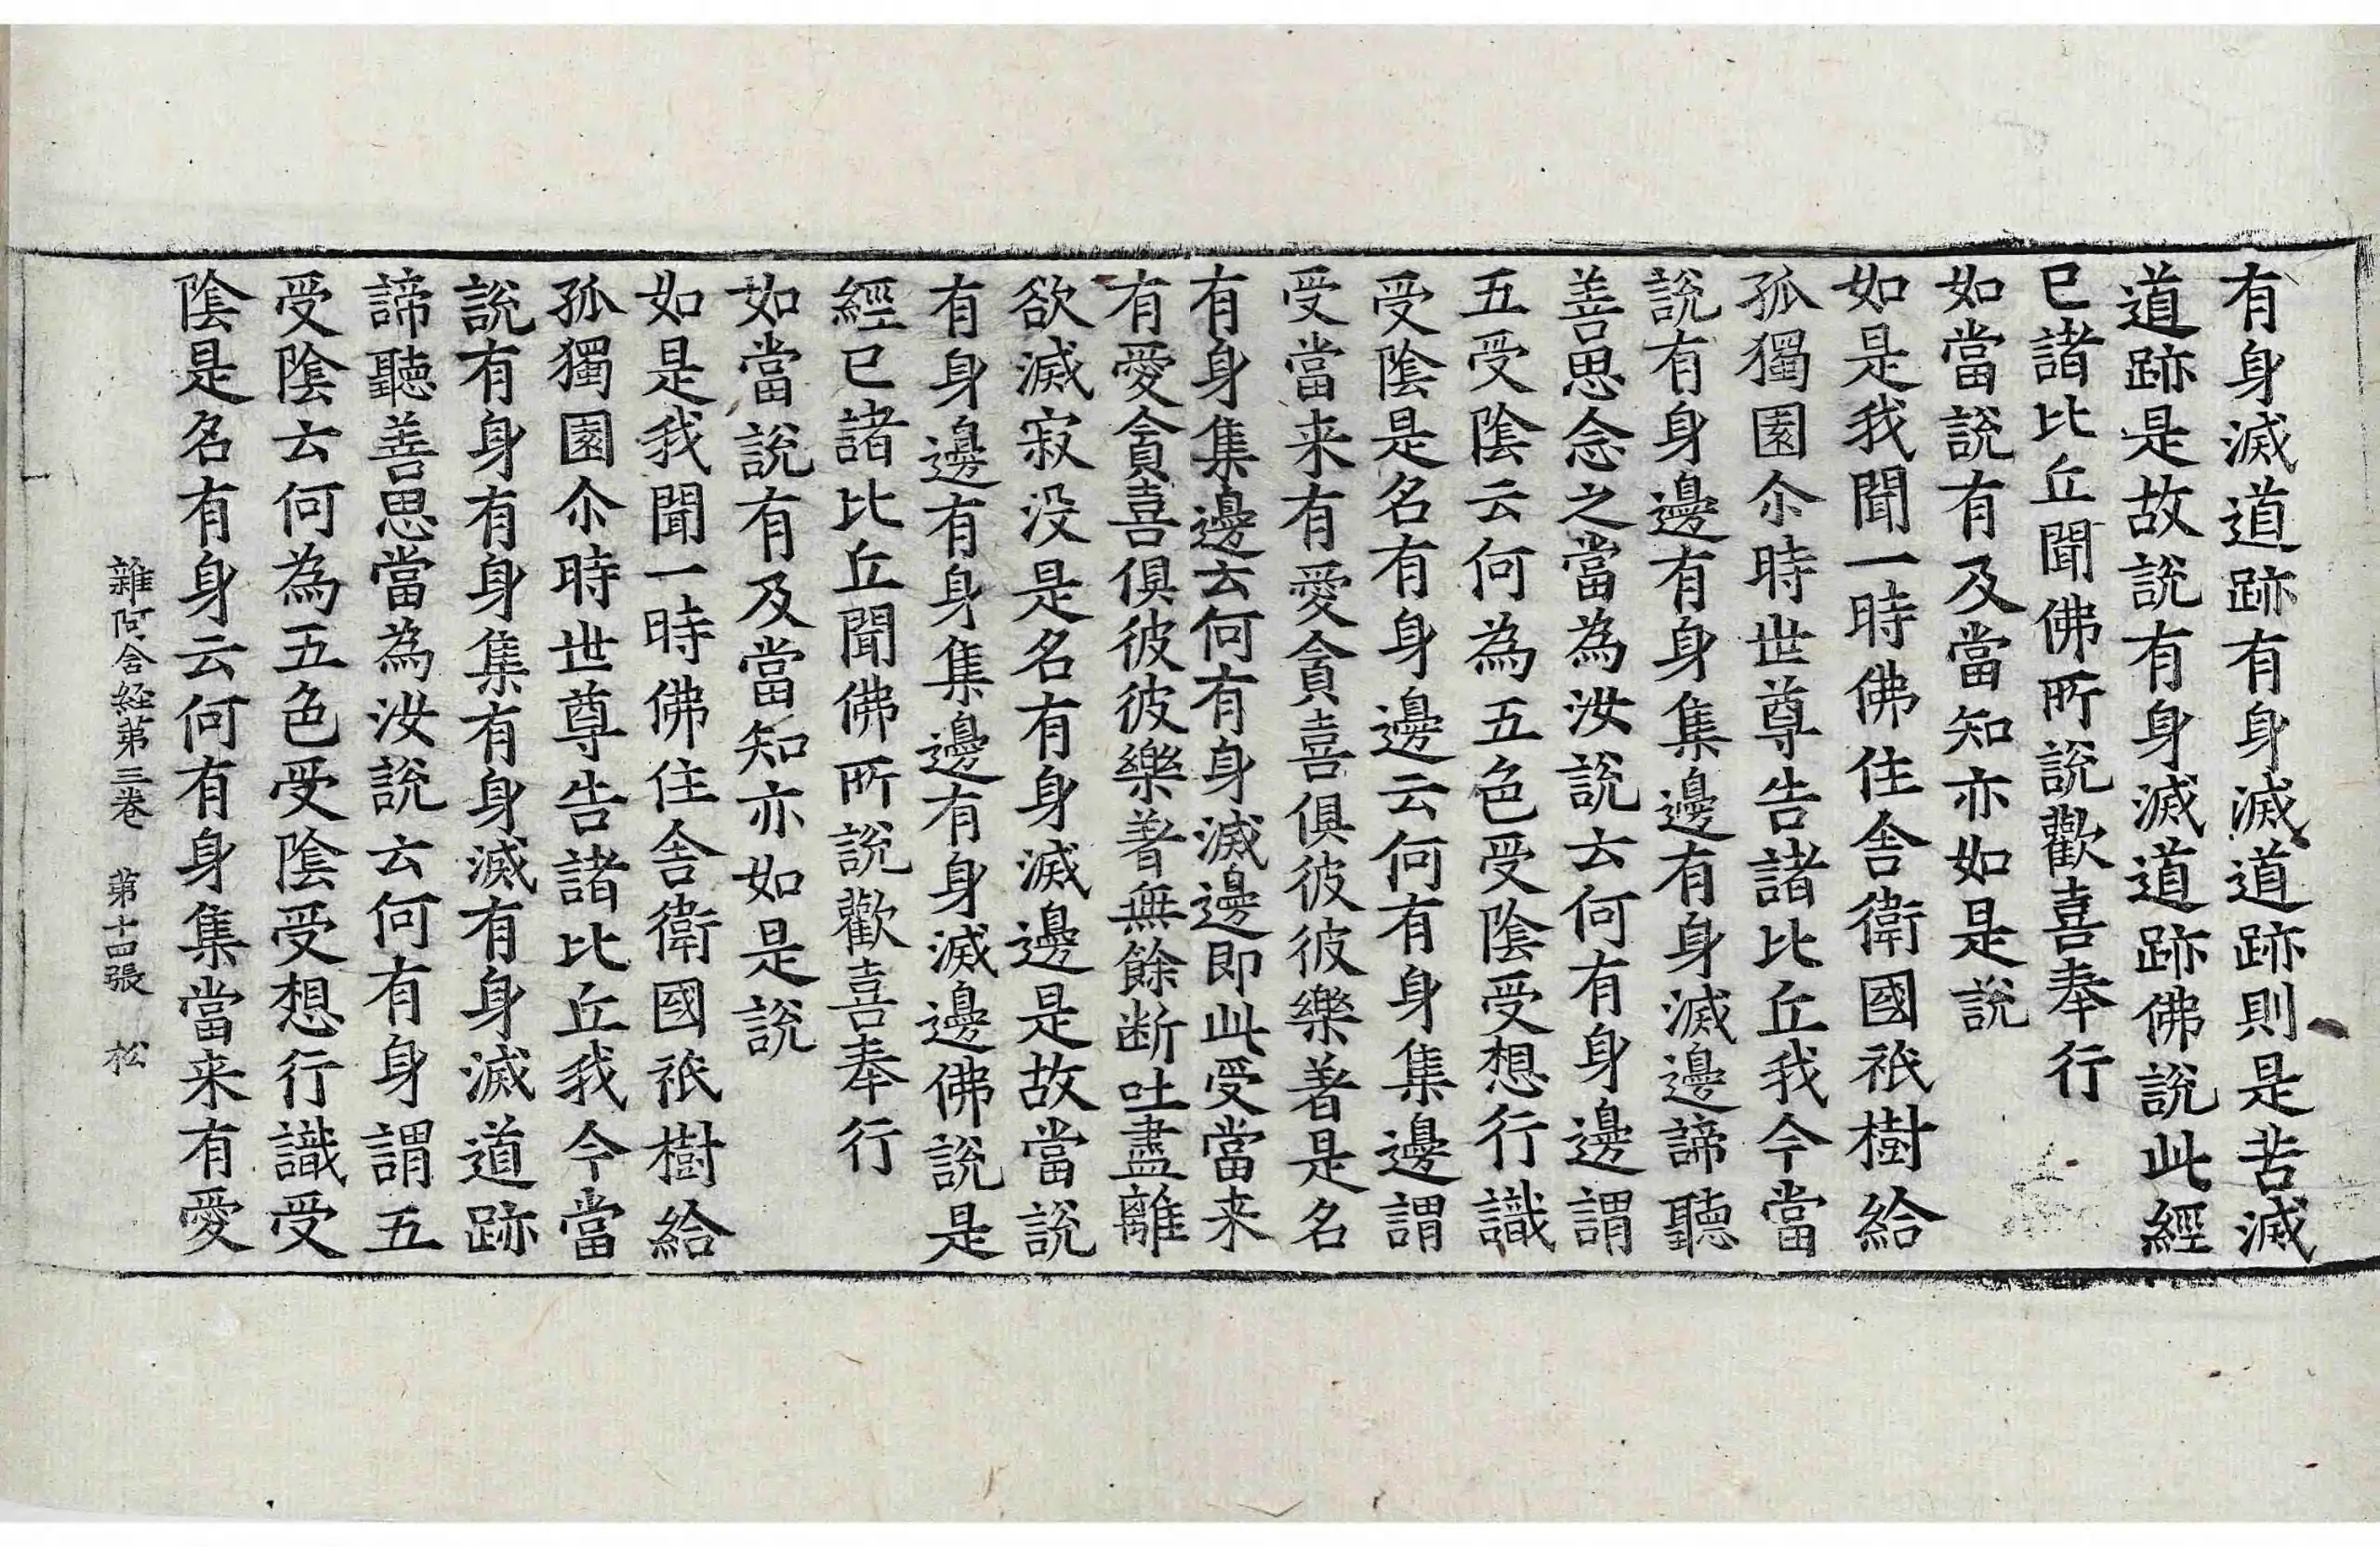 有身滅道跡有身滅道跡則是苦滅
道跡是故說有身滅道跡佛說此經
已諸比丘聞佛所說歡喜奉行
如當說有及當知亦如是說
如是我聞一時佛住舍衛國祇樹給
孤獨園尒時世尊告諸比丘我今當
說有身邊有身集邊有身滅邊諦聽
善思念之當為汝說云何有身邊謂
五受陰云何為五色受陰受想行識
受陰是名有身邊云何有身集邊謂
受當来有愛貪喜俱彼彼樂著是名
有身集邊云何有身滅邊即此受當来
有愛貪喜俱彼彼樂著無餘断吐盡離
欲滅寂没是名有身滅邊是故當說
有身邊有身集邊有身滅邊佛說是
經已諸比丘聞佛所說歡喜奉行
如當說有及當知亦如是說
如是我聞一時佛住舍衛國祇樹給
孤獨園尒時世尊告諸比丘我今當
說有身有身集有身滅有身滅道跡
諦聽善思當為汝說云何有身謂五
受陰云何為五色受陰受想行識受
陰是名有身云何有身集當来有愛
雜阿含経第三巻 第十四張 松